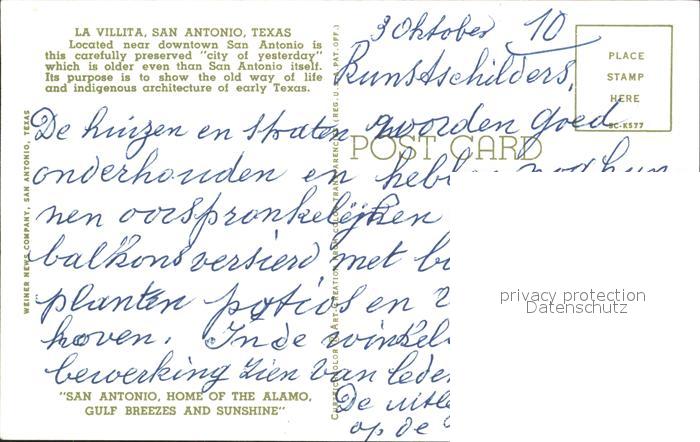 LA VILLITA, SAN ANTONIO, TEXAS
Located near downtown San Antonio is
this carefully preserved "city of yesterday"
which is older even than San Antonio itself.
Its purpose is to show the old way of life
and indigenous architecture of early Texas.
3 Oktober 10
Kunstschilders,
PLACE
STAMP
HERE
SC-K577
De huizen en straten worden goed
POST CARD
onderhouden en heb nog hun
nen oorspronkelijken
balkons versierd met b
planten patios en
hoven. In de winkel
bewerking zien van lede
De uitle
op de
"SAN ANTONIO, HOME OF THE ALAMO,
GULF BREEZES AND SUNSHINE"
WEINER NEWS COMPANY, SAN ANTONIO, TEXAS
privacy protection
Datenschutz